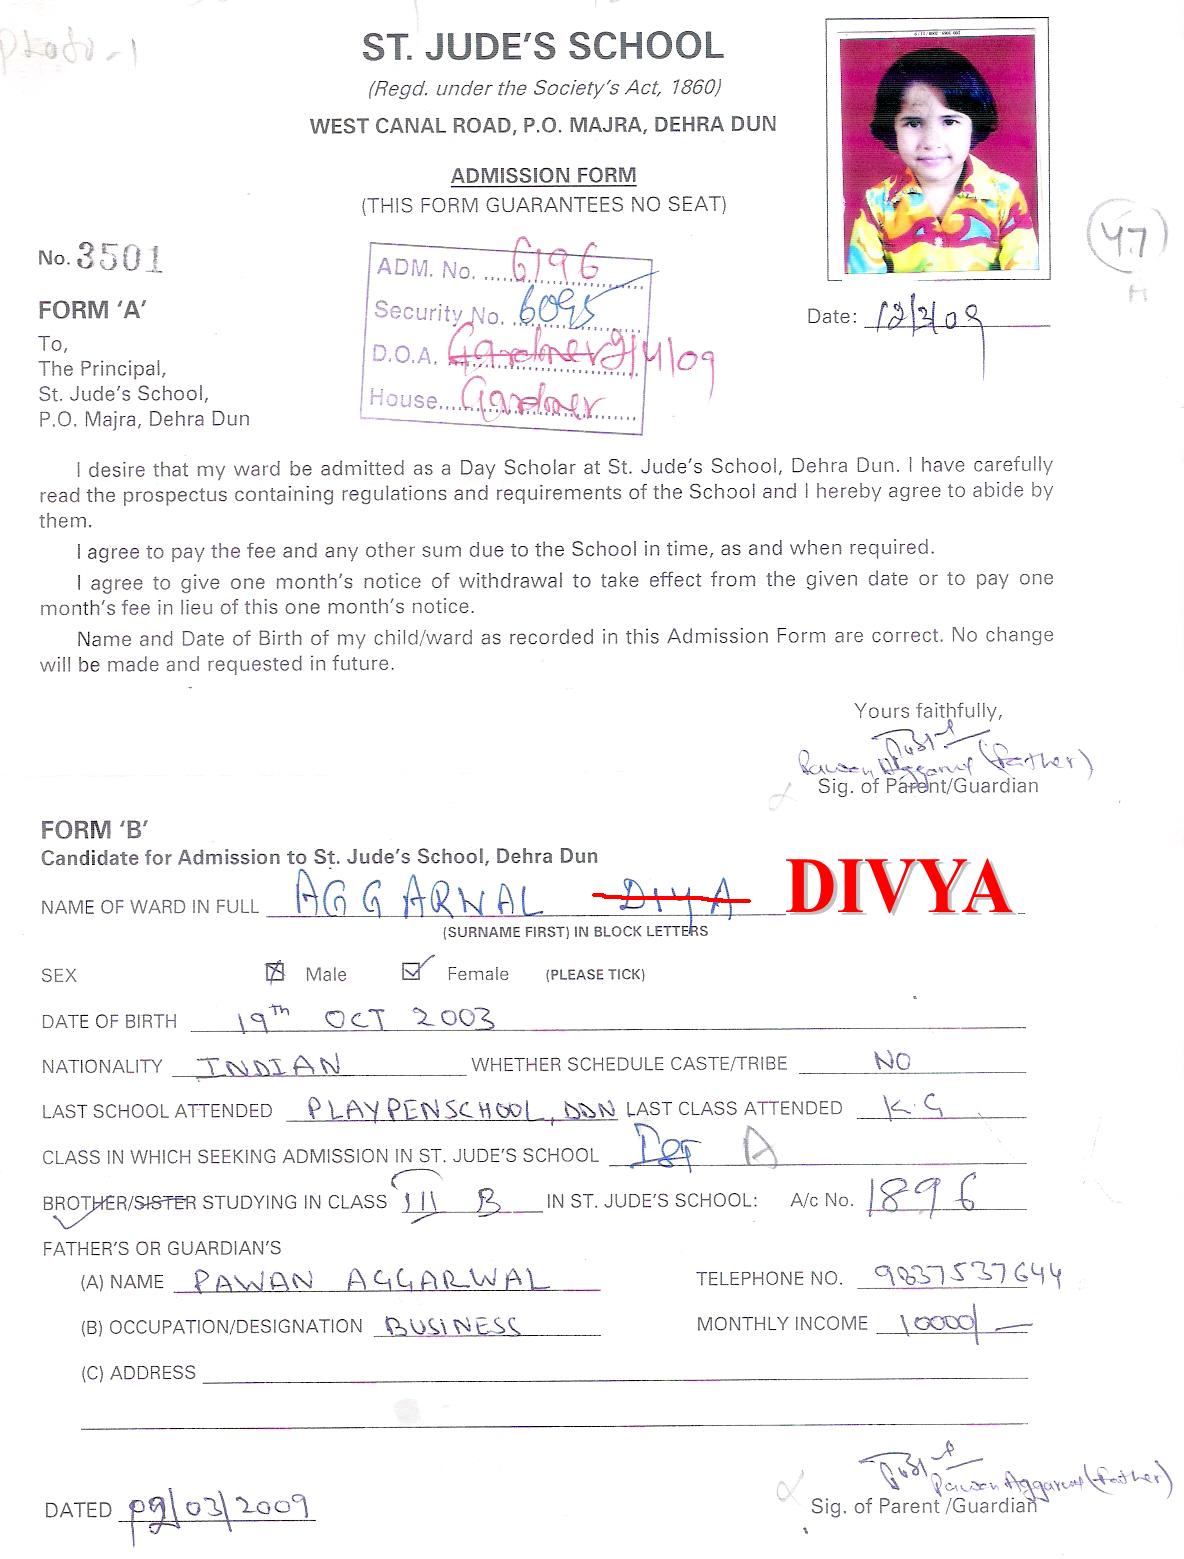 Photo-1
ST. JUDE'S SCHOOL
(Regd. under the Society's Act, 1860)
WEST CANAL ROAD, P.O. MAJRA, DEHRA DUN
ADMISSION FORM
(THIS FORM GUARANTEES NO SEAT)
47
No. 3501
ADM. No. 6196
Security No. 6095
D.O.A. Gardner 9/4/09
House Gardner
Date: 12/3/09
FORM 'A'
To,
The Principal,
St. Jude's School,
P.O. Majra, Dehra Dun
I desire that my ward be admitted as a Day Scholar at St. Jude's School, Dehra Dun. I have carefully
read the prospectus containing regulations and requirements of the School and I hereby agree to abide by
them.
I agree to pay the fee and any other sum due to the School in time, as and when required.
I agree to give one month's notice of withdrawal to take effect from the given date or to pay one
month's fee in lieu of this one month's notice.
Name and Date of Birth of my child/ward as recorded in this Admission Form are correct. No change
will be made and requested in future.
Yours faithfully,
Pawan Aggarwal (Father)
Sig. of Parent/Guardian
FORM 'B'
Candidate for Admission to St. Jude's School, Dehra Dun
NAME OF WARD IN FULL AGGARWAL DIYA DIVYA
(SURNAME FIRST) IN BLOCK LETTERS
SEX Male Female (PLEASE TICK)
DATE OF BIRTH 19th OCT 2003
NATIONALITY INDIAN WHETHER SCHEDULE CASTE/TRIBE NO
LAST SCHOOL ATTENDED PLAYPENSCHOOL, DDN LAST CLASS ATTENDED K.G
CLASS IN WHICH SEEKING ADMISSION IN ST. JUDE'S SCHOOL A
BROTHER/SISTER STUDYING IN CLASS III B IN ST. JUDE'S SCHOOL: A/c No. 1896
FATHER'S OR GUARDIAN'S
(A) NAME PAWAN AGGARWAL TELEPHONE NO. 9837537644
(B) OCCUPATION/DESIGNATION BUSINESS MONTHLY INCOME 10000/-
(C) ADDRESS
Pawan Aggarwal (Father)
DATED 09/03/2009 Sig. of Parent /Guardian